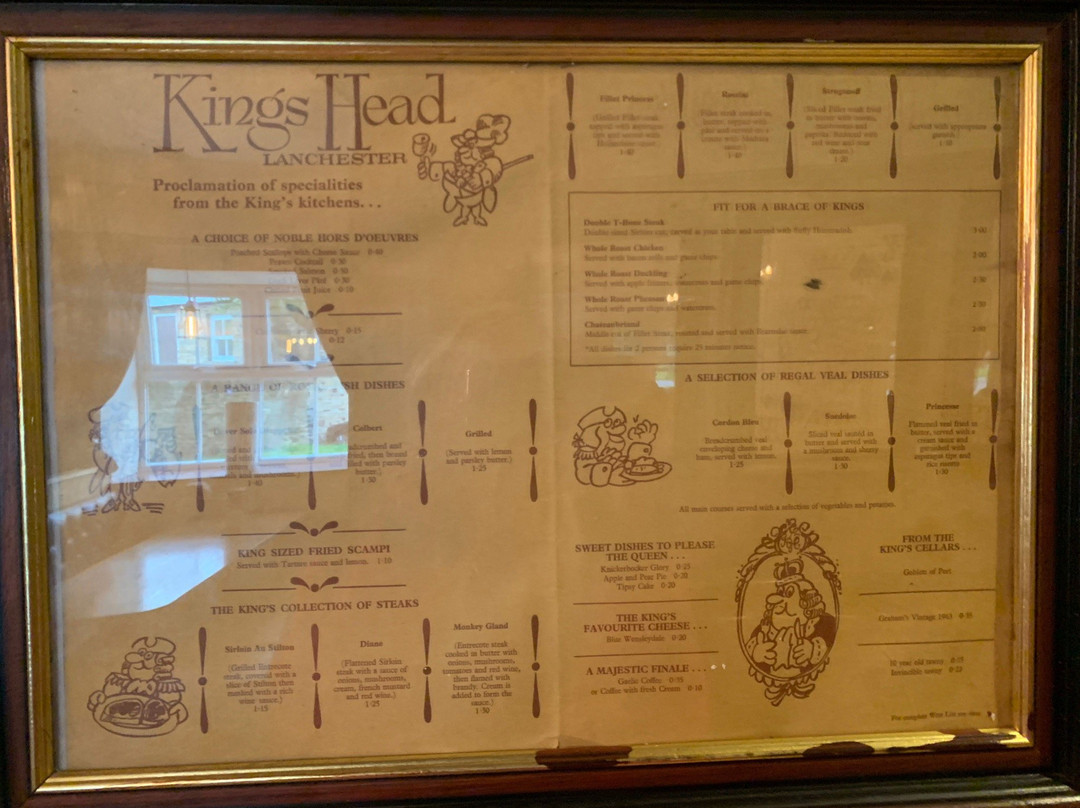 Kings Head
LANCHESTER
Proclamation of specialities
from the King's kitchens...
A CHOICE OF NOBLE HORS D'OEUVRES
Poached Scallops with Cheese Sauce 0·40
Prawn Cocktail 0·50
Salmon 0·50
0·50
Juice 0·10
0·15
0·12
DISHES
Colbert
and
fried, then boned
filled with parsley
butter.)
1·50
1·40
Grilled
(Served with lemon
and parsley butter.)
1·25
KING SIZED FRIED SCAMPI
Served with Tartare sauce and lemon. 1·10
THE KING'S COLLECTION OF STEAKS
Sirloin Au Stilton
(Grilled Entrecote
steak, covered with a
slice of Stilton then
masked with a rich
wine sauce.)
1·15
Diane
(Flamed Sirloin
steak with a sauce of
onions, mushrooms,
cream, french mustard
and red wine.)
1·25
Monkey Gland
(Entrecote steak
cooked in butter with
onions, mushrooms,
tomatoes and red wine,
then flamed with
brandy. Cream is
added to form the
sauce.)
1·30
Fillet Princess
(Grilled Fillet steak
topped with asparagus
tips and served with
sauce.)
1·40
Rossini
(Fillet steak cooked in
butter, topped with
pâté and served on a
croute with Madeira
sauce.)
1·40
Stroganoff
(Sliced Fillet steak fried
in butter with onions,
mushrooms and
paprika. Simmered with
red wine and sour
cream.)
1·20
Grilled
(served with appropriate
garnish.)
1·10
FIT FOR A BRACE OF KINGS
Double T-Bone Steak
Double sized Sirloin cut, carved at your table and served with Sauce 3·00
Whole Roast Chicken
Served with bacon rolls and game chips 2·00
Whole Roast Duckling
Served with apple watercress and game chips 2·50
Whole Roast Pheasant
Served with game chips and watercress. 2·50
Chateaubriand
Middle cut of Fillet Steak, roasted and served with Bearnaise sauce 2·60
*All dishes for 2 persons require 25 minutes notice.
A SELECTION OF REGAL VEAL DISHES
Cordon Bleu
Breadcrumbed veal
enveloping cheese and
ham, served with lemon.
1·25
Suedoise
Sliced veal sauted in
butter and served with
a mushroom and sherry
sauce.
1·30
Princesse
Flamed veal fried in
butter, served with a
cream sauce and
garnished with
asparagus tips and
rice risotto
1·30
All main courses served with a selection of vegetables and potatoes.
SWEET DISHES TO PLEASE
THE QUEEN...
Knickerbocker Glory 0·25
Apple and Pear Pie 0·20
Tipsy Cake 0·20
THE KING'S
FAVOURITE CHEESE...
Blue Wensleydale 0·20
A MAJESTIC FINALE...
Gaelic Coffee 0·35
or Coffee with fresh Cream 0·10
FROM THE
KING'S CELLARS...
Goblets of Port
Graham's Vintage 1963 0·35
10 year old tawny 0·25
Invincible tawny 0·23
For complete Wine List see over